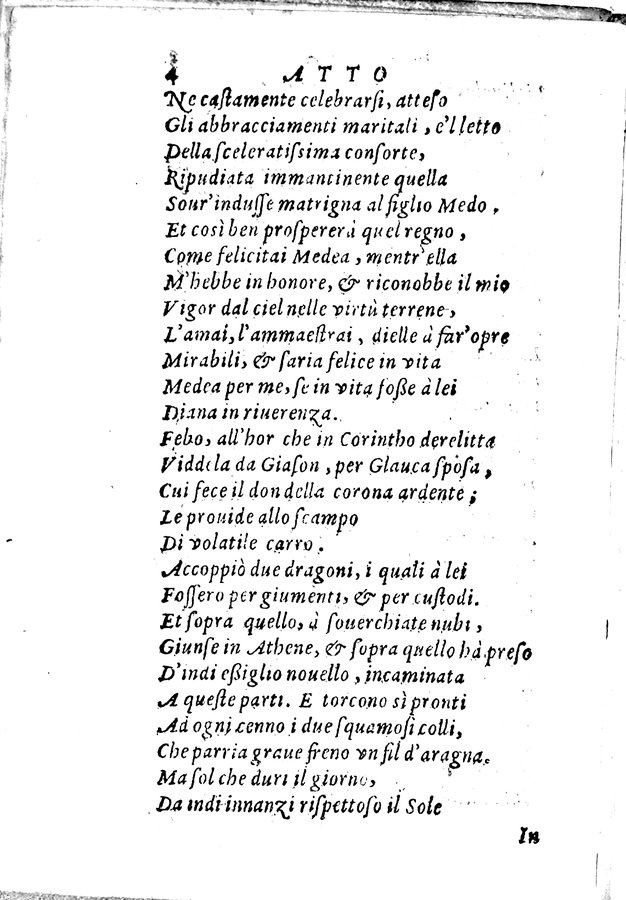 4 ATTO
Ne caſtamente celebrarſi, atteſo
Gli abbracciamenti maritali, e'l letto
Della ſceleratiſſima conſorte,
Ripudiata immantinente quella
Sour'induſſe matrigna al figlio Medo.
Et così ben proſpererà quel regno,
Come felicitai Medea, mentr'ella
M'hebbe in honore, & riconobbe il mio
Vigor dal ciel nelle virtù terrene,
L'amai, l'ammaeſtrai, dielle à far'opre
Mirabili, & ſaria felice in vita
Medea per me, ſe in vita foße à lei
Diana in riuerenza.
Febo, all'hor che in Corintho derelitta
Viddela da Giaſon, per Glauca ſpoſa,
Cui fece il don della corona ardente;
Le prouide allo ſcampo
Di volatile carro.
Accoppiò due dragoni, i quali à lei
Foſſero per giumenti, & per cuſtodi.
Et ſopra quello, à ſouerchiate nubi,
Giunſe in Athene, & ſopra quello hà preſo
D'indi eßiglio nouello, incaminata
A queſte parti. E torcono sì pronti
Ad ogni cenno i due ſquamoſi colli,
Che parria graue freno vn fil d'aragna.
Ma ſol che duri il giorno,
Da indi innanzi riſpettoſo il Sole
In